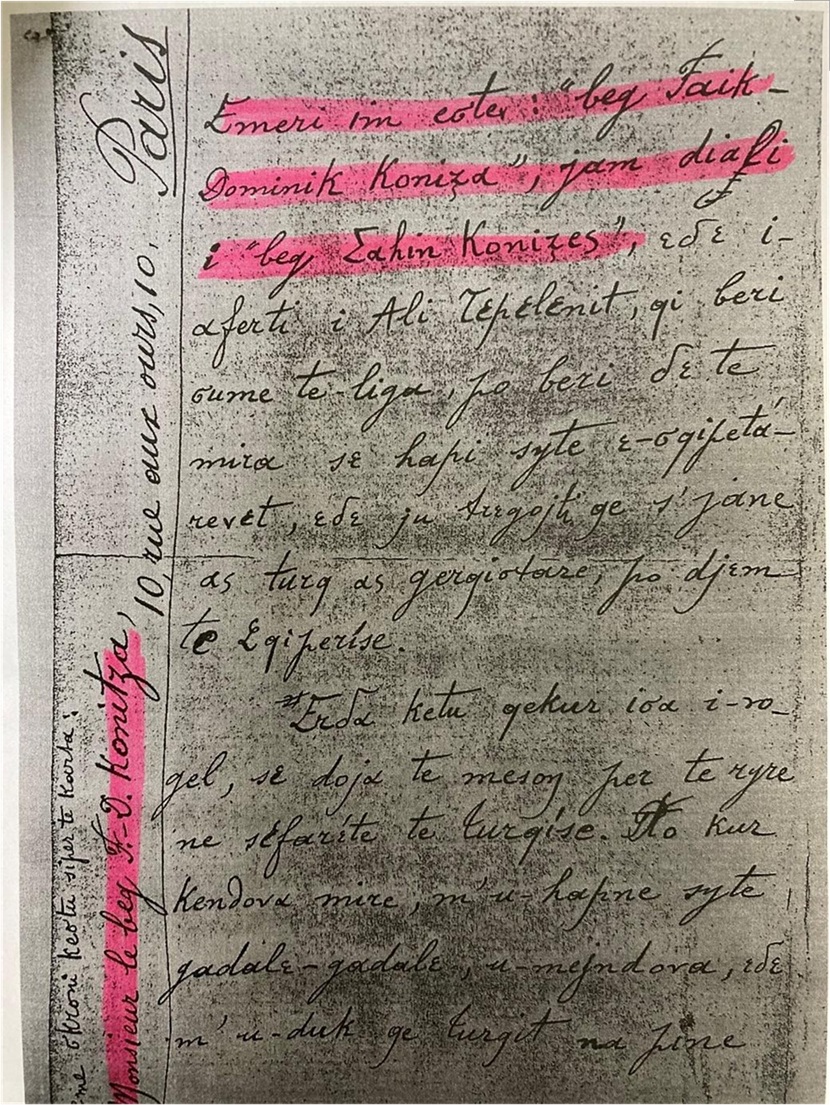 Emeri im eσte : "beg Faik-
Dominik Koniҙa", jam diaļi
i "beg Σahin Koniҙes", εδε i-
aferti i Ali Tepelenit, qi beri
σume te-liga, po beri δε te
mira se hapi syte ε-σqipetá-
revet, εδε ju tregojti qe s'jane
as turq as gergiσtare, po djem
te Σqiperíse.
Erδa ketu qekur iσa i-vo-
gel, se doja te mesoŋ per te ryre
ne sefaríte te turqíse. Po kur
kendova mire, m'u-hapne syte
gadale-gadale, u-mejndova, εδε
m'u-duk qe turqit na pine
Paris
10, rue aux ours, 10.
Monsieur le beg F.-D. Konitza,
me σkroni keσtu siper te karta: